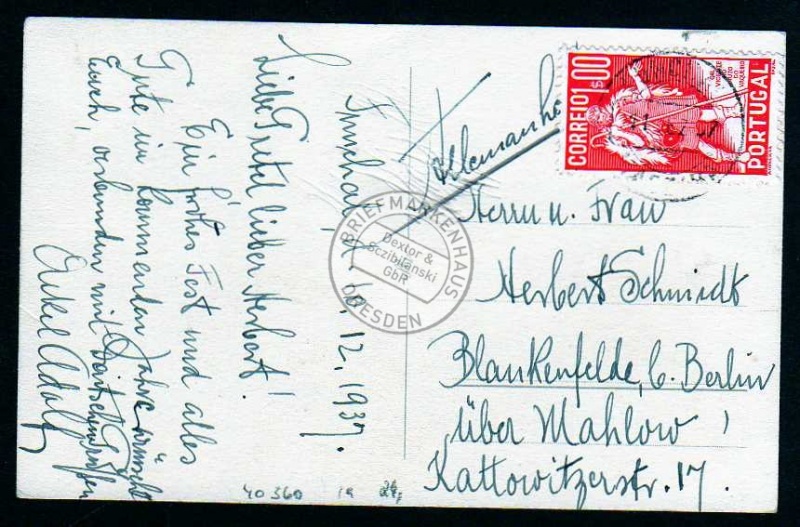 Funchal, d. 10. 12. 1937.
Liebe Gretel, lieber Herbert!
Ein frohes Fest und alles
Gute im kommenden Jahre wünscht
Euch, verbunden mit Deutschem Gruß
Onkel Adolf
Allemanha
Herrn u. Frau
Herbert Schmidt
Blankenfelde, b. Berlin
über Mahlow
Kattowitzerstr. 17.
CORREIO 1$00
PORTUGAL
BRIEFMARKENHAUS
Dextor &
Sczibilanski
GbR
DRESDEN
40360